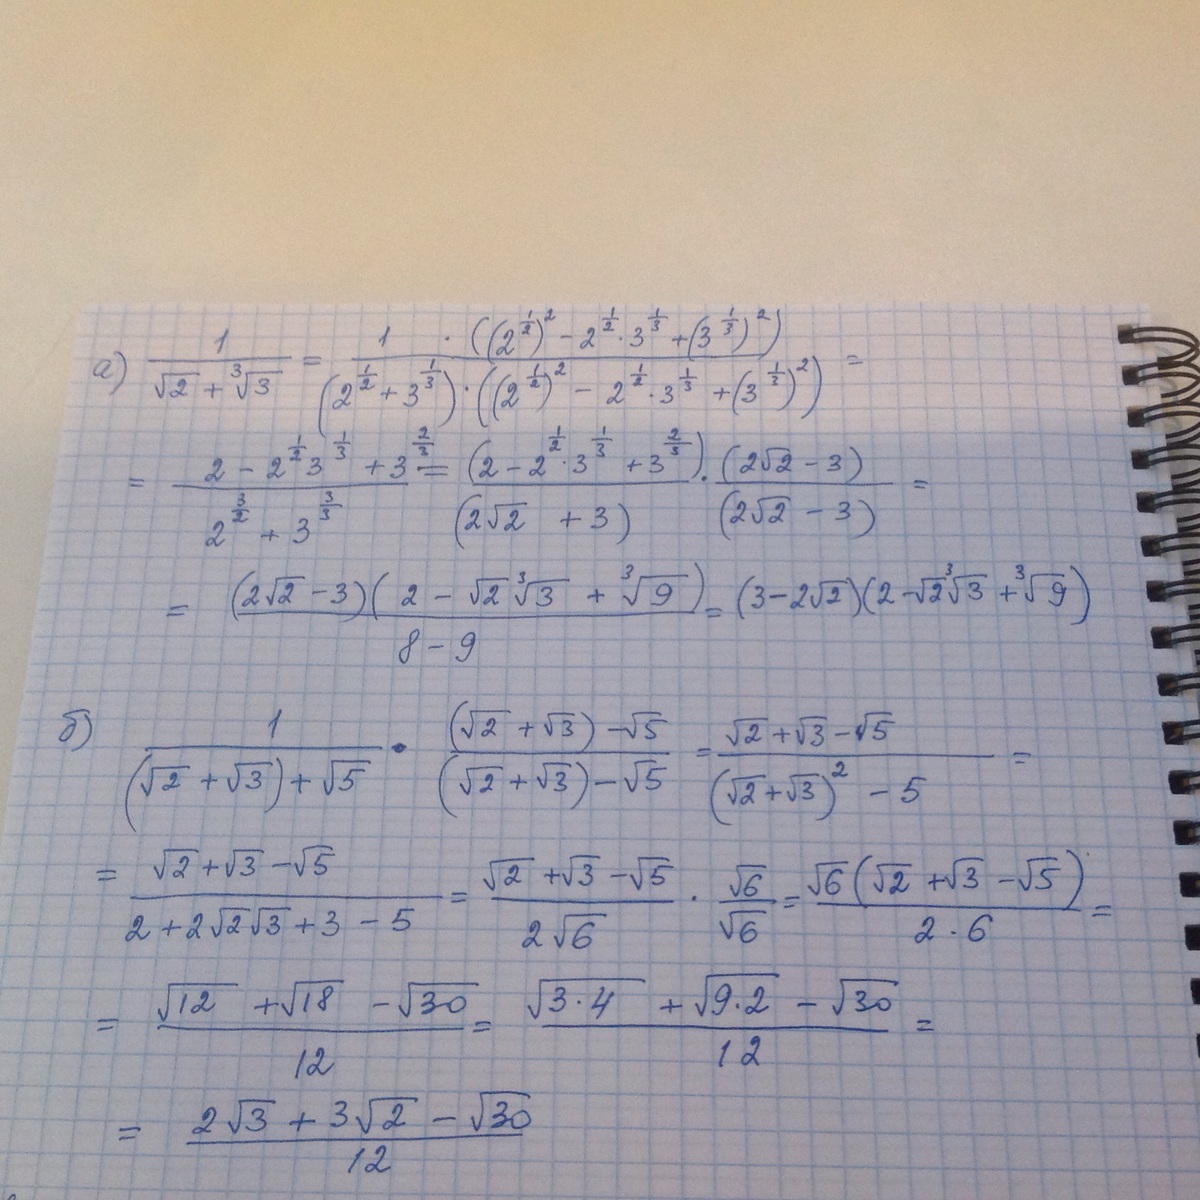 а) 1/(√2 + ∛3) = (1 · ((2^(1/2))^2 − 2^(1/2) · 3^(1/3) + (3^(1/3))^2))/((2^(1/2) + 3^(1/3)) · ((2^(1/2))^2 − 2^(1/2) · 3^(1/3) + (3^(1/3))^2)) =
= (2 − 2^(1/2) 3^(1/3) + 3^(2/3))/(2^(3/2) + 3^(3/3)) = (2 − 2^(1/2) · 3^(1/3) + 3^(2/3))/(2√2 + 3) · (2√2 − 3)/(2√2 − 3) =
= ((2√2 − 3)(2 − √2 ∛3 + ∛9))/(8 − 9) = (3 − 2√2)(2 − √2 ∛3 + ∛9)
б) 1/((√2 + √3) + √5) · ((√2 + √3) − √5)/((√2 + √3) − √5) = (√2 + √3 − √5)/((√2 + √3)^2 − 5) =
= (√2 + √3 − √5)/(2 + 2√2√3 + 3 − 5) = (√2 + √3 − √5)/(2√6) · √6/√6 = (√6(√2 + √3 − √5))/(2 · 6) =
= (√12 + √18 − √30)/12 = (√(3·4) + √(9·2) − √30)/12 =
= (2√3 + 3√2 − √30)/12